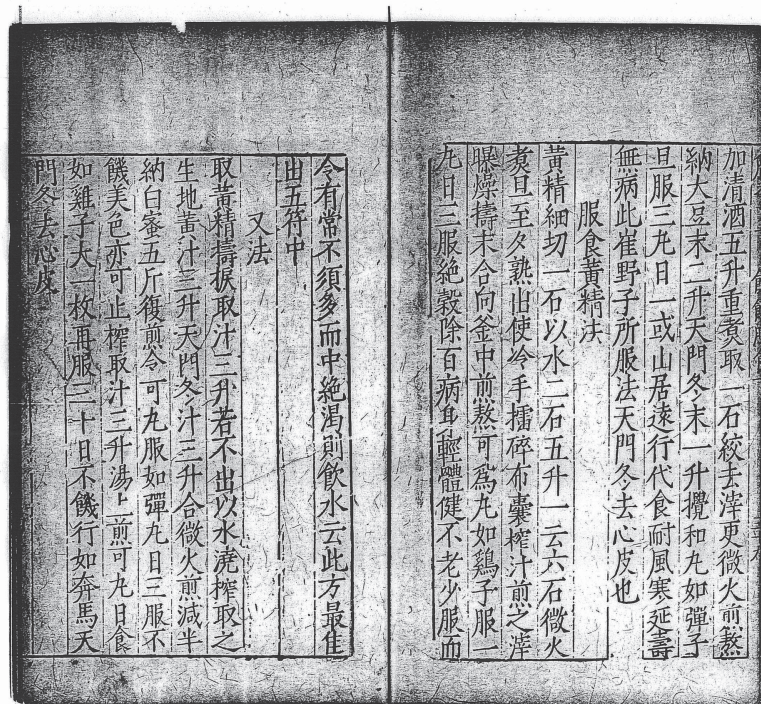 加清酒五升重煮取一石絞去滓更微火煎熬
納大豆末二升天門冬末一升攪和丸如彈子
旦服三丸日一或山居遠行代食耐風寒延壽
無病此崔野子所服法天門冬去心皮也
服食黃精法
黃精細切一石以水二石五升一云六石微火
煮旦至夕熟出使冷手擂碎布囊榨汁煎之滓
曝燥擣末合向釜中煎熬可為丸如鷄子服一
丸日三服絶穀除百病身輕體健不老少服而
令有常不須多而中絶渴則飲水云此方最佳
出五符中
又法
取黃精擣捩取汁三升若不出以水澆榨取之
生地黃汁三升天門冬汁三升合微火煎減半
納白蜜五斤復煎令可丸服如彈丸日三服不
饑美色亦可止榨取汁三升湯上煎可丸日食
如雞子大一枚再服三十日不饑行如奔馬天
門冬去心皮